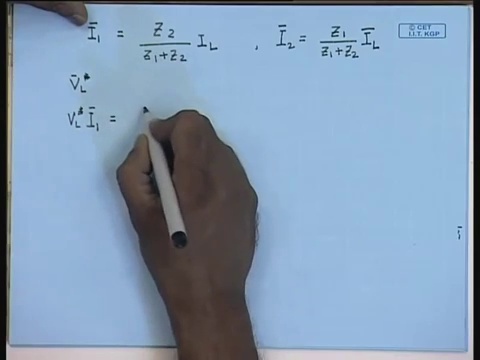 Ī₁ = Z₂ / (Z₁+Z₂) I_L , Ī₂ = Z₁ / (Z₁+Z₂) Ī_L
© CET
I.I.T. KGP
V̄_L*
V_L* Ī₁ =